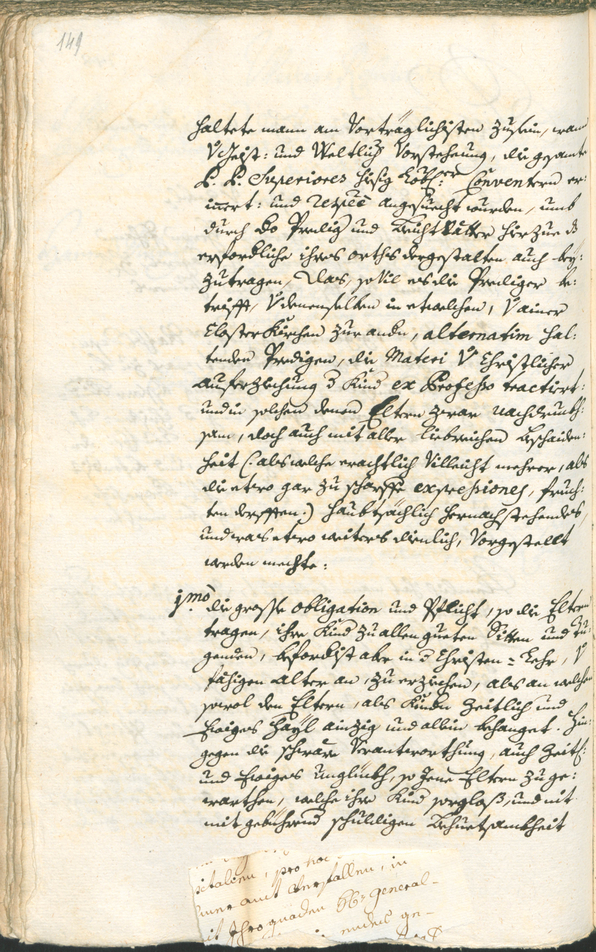 149
haltete mann am Vorträglichisten zu sein, wann
V Geist: und Weltlich Vorstehung, die gesamte
P. P. Superiores hisig Löbl: Conventen er-
icert: und respèe angesuecht wurden, umb
durch do Predig und Beicht Vätter hierzue
erforderliche ihres orths dergestalten auch bey-
zutragen, das, sovil es die Prediger be-
trifft, V denenselben in etwelchen, V ainer
Closter Kirchen zur andn, alternatim hal-
tenden Predigen, die Materi V Christlicher
Auferziehung d Kind ex Professo tractirt:
und in solchen denen Eltern zwar nachdruckh-
sam, doch auch mit aller liebreichen Beschaiden-
heit (: als welche erachtlich Villeicht mehrer, als
die etwo gar zu scharffe expressiones, fruch-
ten derfften:) haubtsächlich hernachstehendes,
und was etwo weiters dienlich, Vorgestellt
werden mechte:
1mo die grosse obligation und Pflicht, so die Eltern
tragen, ihre Kind zu allen gueten Sitten und Tu-
genden, beforderist aber in d Christen-Lehr, V
fähigen Alter an, zu erziehen, als an welchen
sowol den Eltern, als Kindn Zeitlich und
Ewiges Hayl ainzig und allein behanget. Hin-
gegen die schwäre Verantworthung, auch Zeitl:
und Ewiges unglückh, so Jene Eltern zu ge-
warthen, welche ihre Kind sorgloß, und nit
mit gebührend schuldigen Behuetsambkeit
pro hoc
amt Verfallen, in
Ihro gnaden general-
ge-